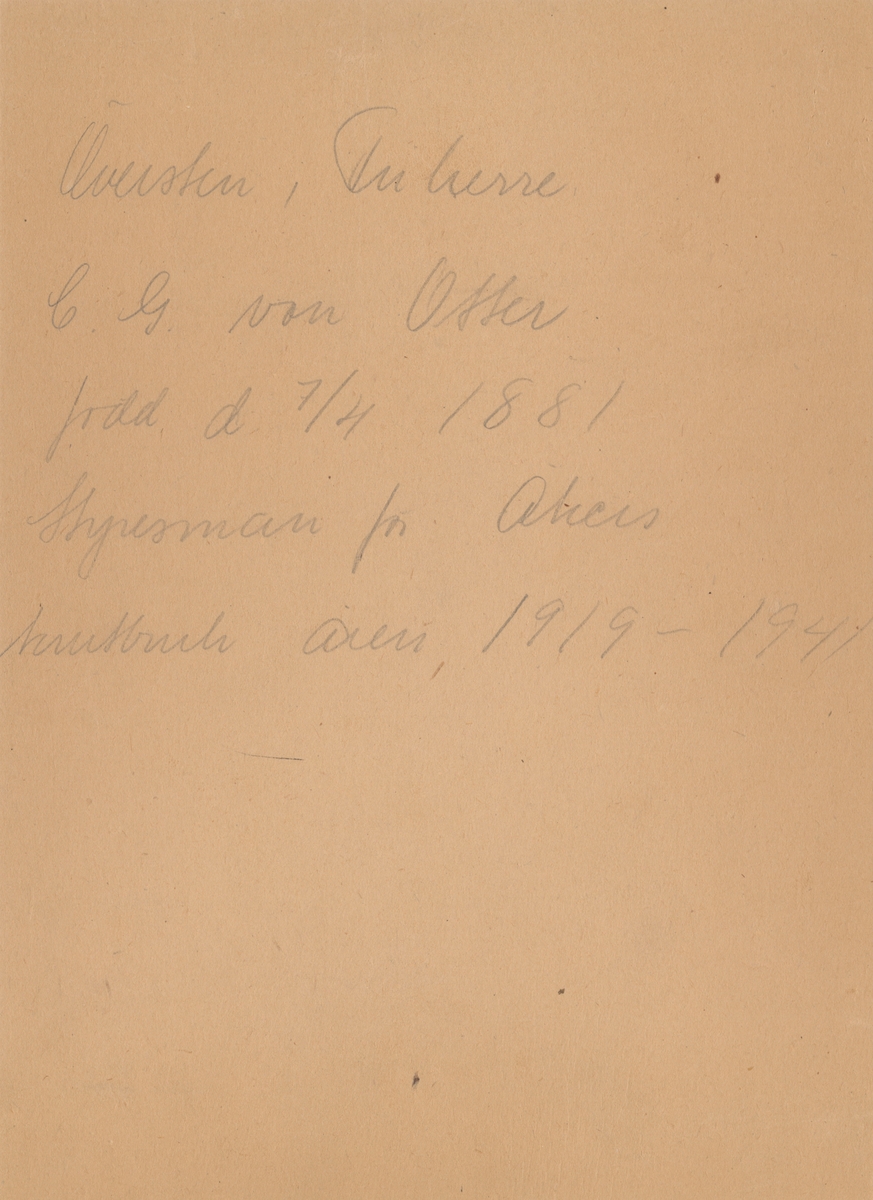 Översten, Friherre
C. G. von Otter
född d. 7/4 1881
Styresman för Åkers
krutbruk åren 1919 – 1941